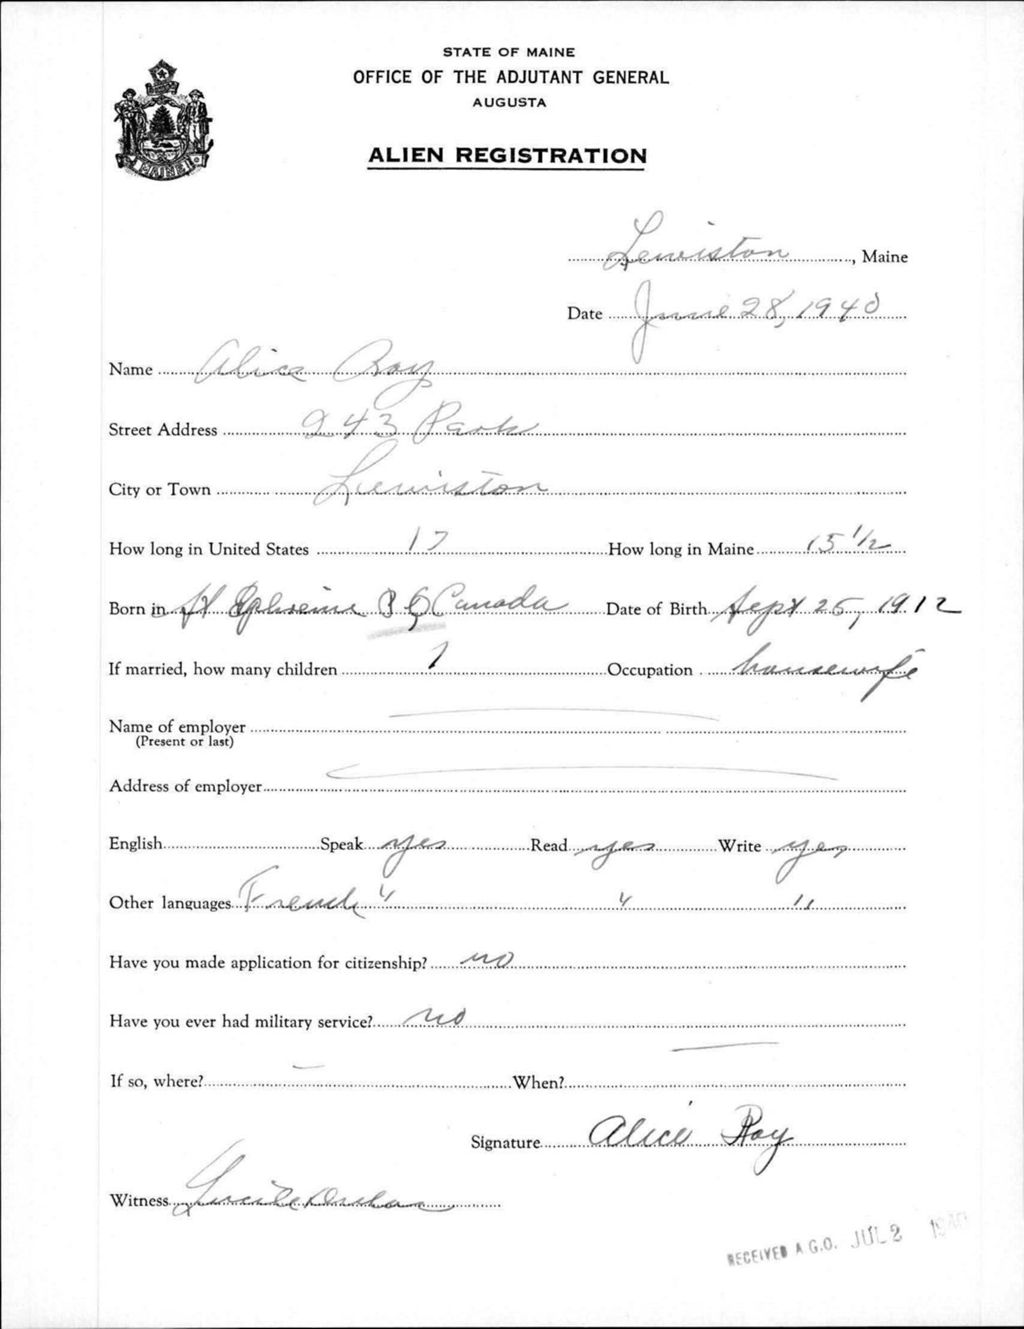 STATE OF MAINE
OFFICE OF THE ADJUTANT GENERAL
AUGUSTA
MAINE
ALIEN REGISTRATION
Lewiston, Maine
Date June 28, 1940
Name Alice Roy
Street Address 243 Park
City or Town Lewiston
How long in United States 17 How long in Maine 15 1/2
Born in St Ephreine P Q Canada Date of Birth Sept 25, 1912
If married, how many children 1 Occupation housewife
Name of employer
(Present or last)
Address of employer
English Speak yes Read yes Write yes
Other languages French " " "
Have you made application for citizenship? no
Have you ever had military service? no
If so, where? — When? —
Signature Alice Roy
Witness Lucile
RECEIVED A.G.O. JUL 2 1940